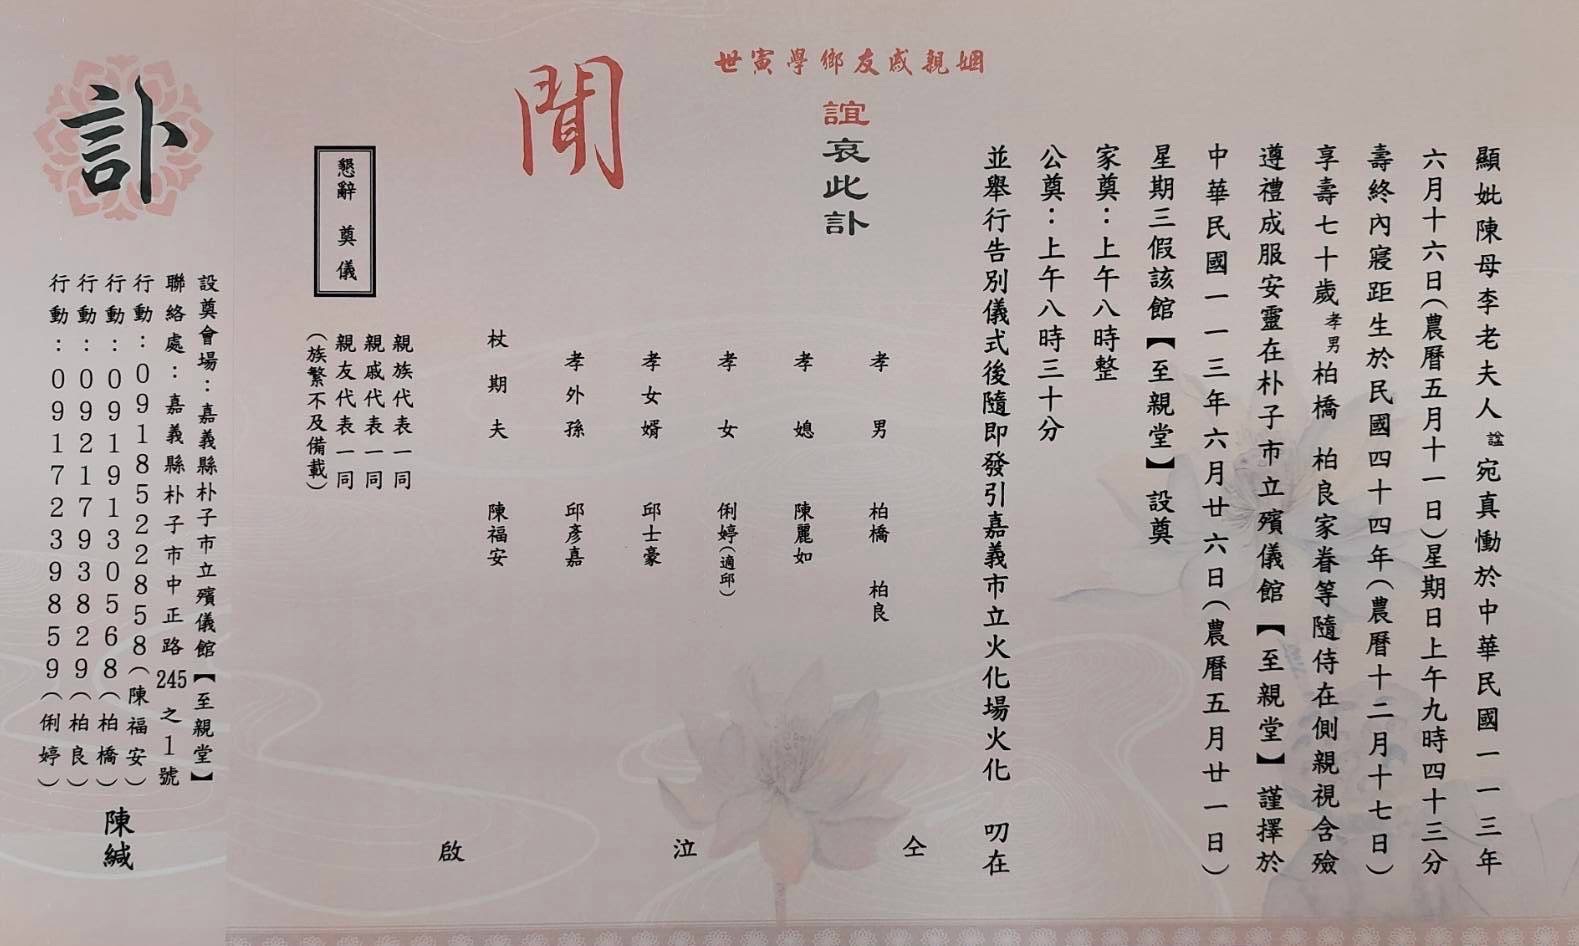 顯妣陳母李老夫人諡宛真慟於中華民國一一三年
六月十六日(農曆五月十一日)星期日上午九時四十三分
壽終內寢距生於民國四十四年(農曆十二月十七日)
享壽七十歲孝男柏橋 柏良家眷等隨侍在側親視含殮
遵禮成服安靈在朴子市立殯儀館【至親堂】謹擇於
中華民國一一三年六月廿六日(農曆五月廿一日)
星期三假該館【至親堂】設奠
家奠：上午八時整
公奠：上午八時三十分
並舉行告別儀式後隨即發引嘉義市立火化場火化 叨在
姻親戚友鄉學寅世
誼哀此訃
聞
孝男 柏橋 柏良
孝媳 陳麗如
孝女 俐婷(適邱)
孝女婿 邱士豪
孝外孫 邱彥嘉
杖期夫 陳福安
仝 泣 啟
親族代表一同
親戚代表一同
親友代表一同
(族繁不及備載)
懇辭 奠儀
訃
設奠會場：嘉義縣朴子市立殯儀館【至親堂】
聯絡處：嘉義縣朴子市中正路245之1號
行動：0918522858(陳福安)
行動：0919130568(柏橋)
行動：0921793829(柏良)
行動：0917239859(俐婷)
陳緘